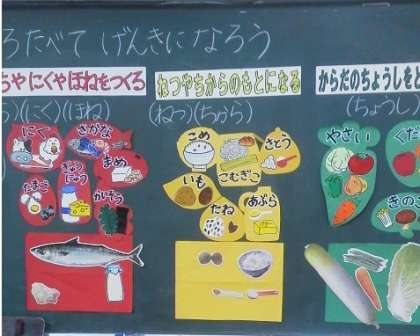 ろたべて げんきになろう
ちや にくや ほねをつくる
ねつやちからのもとになる
からだのちょうしをと
)(にく)(ほね)
(ねつ)(ちから)
(ちょうし
にく
さかな
まめ
たまご
かいそう
こめ
さとう
こむぎこ
いも
たね
あぶら
やさい
くだ
きの